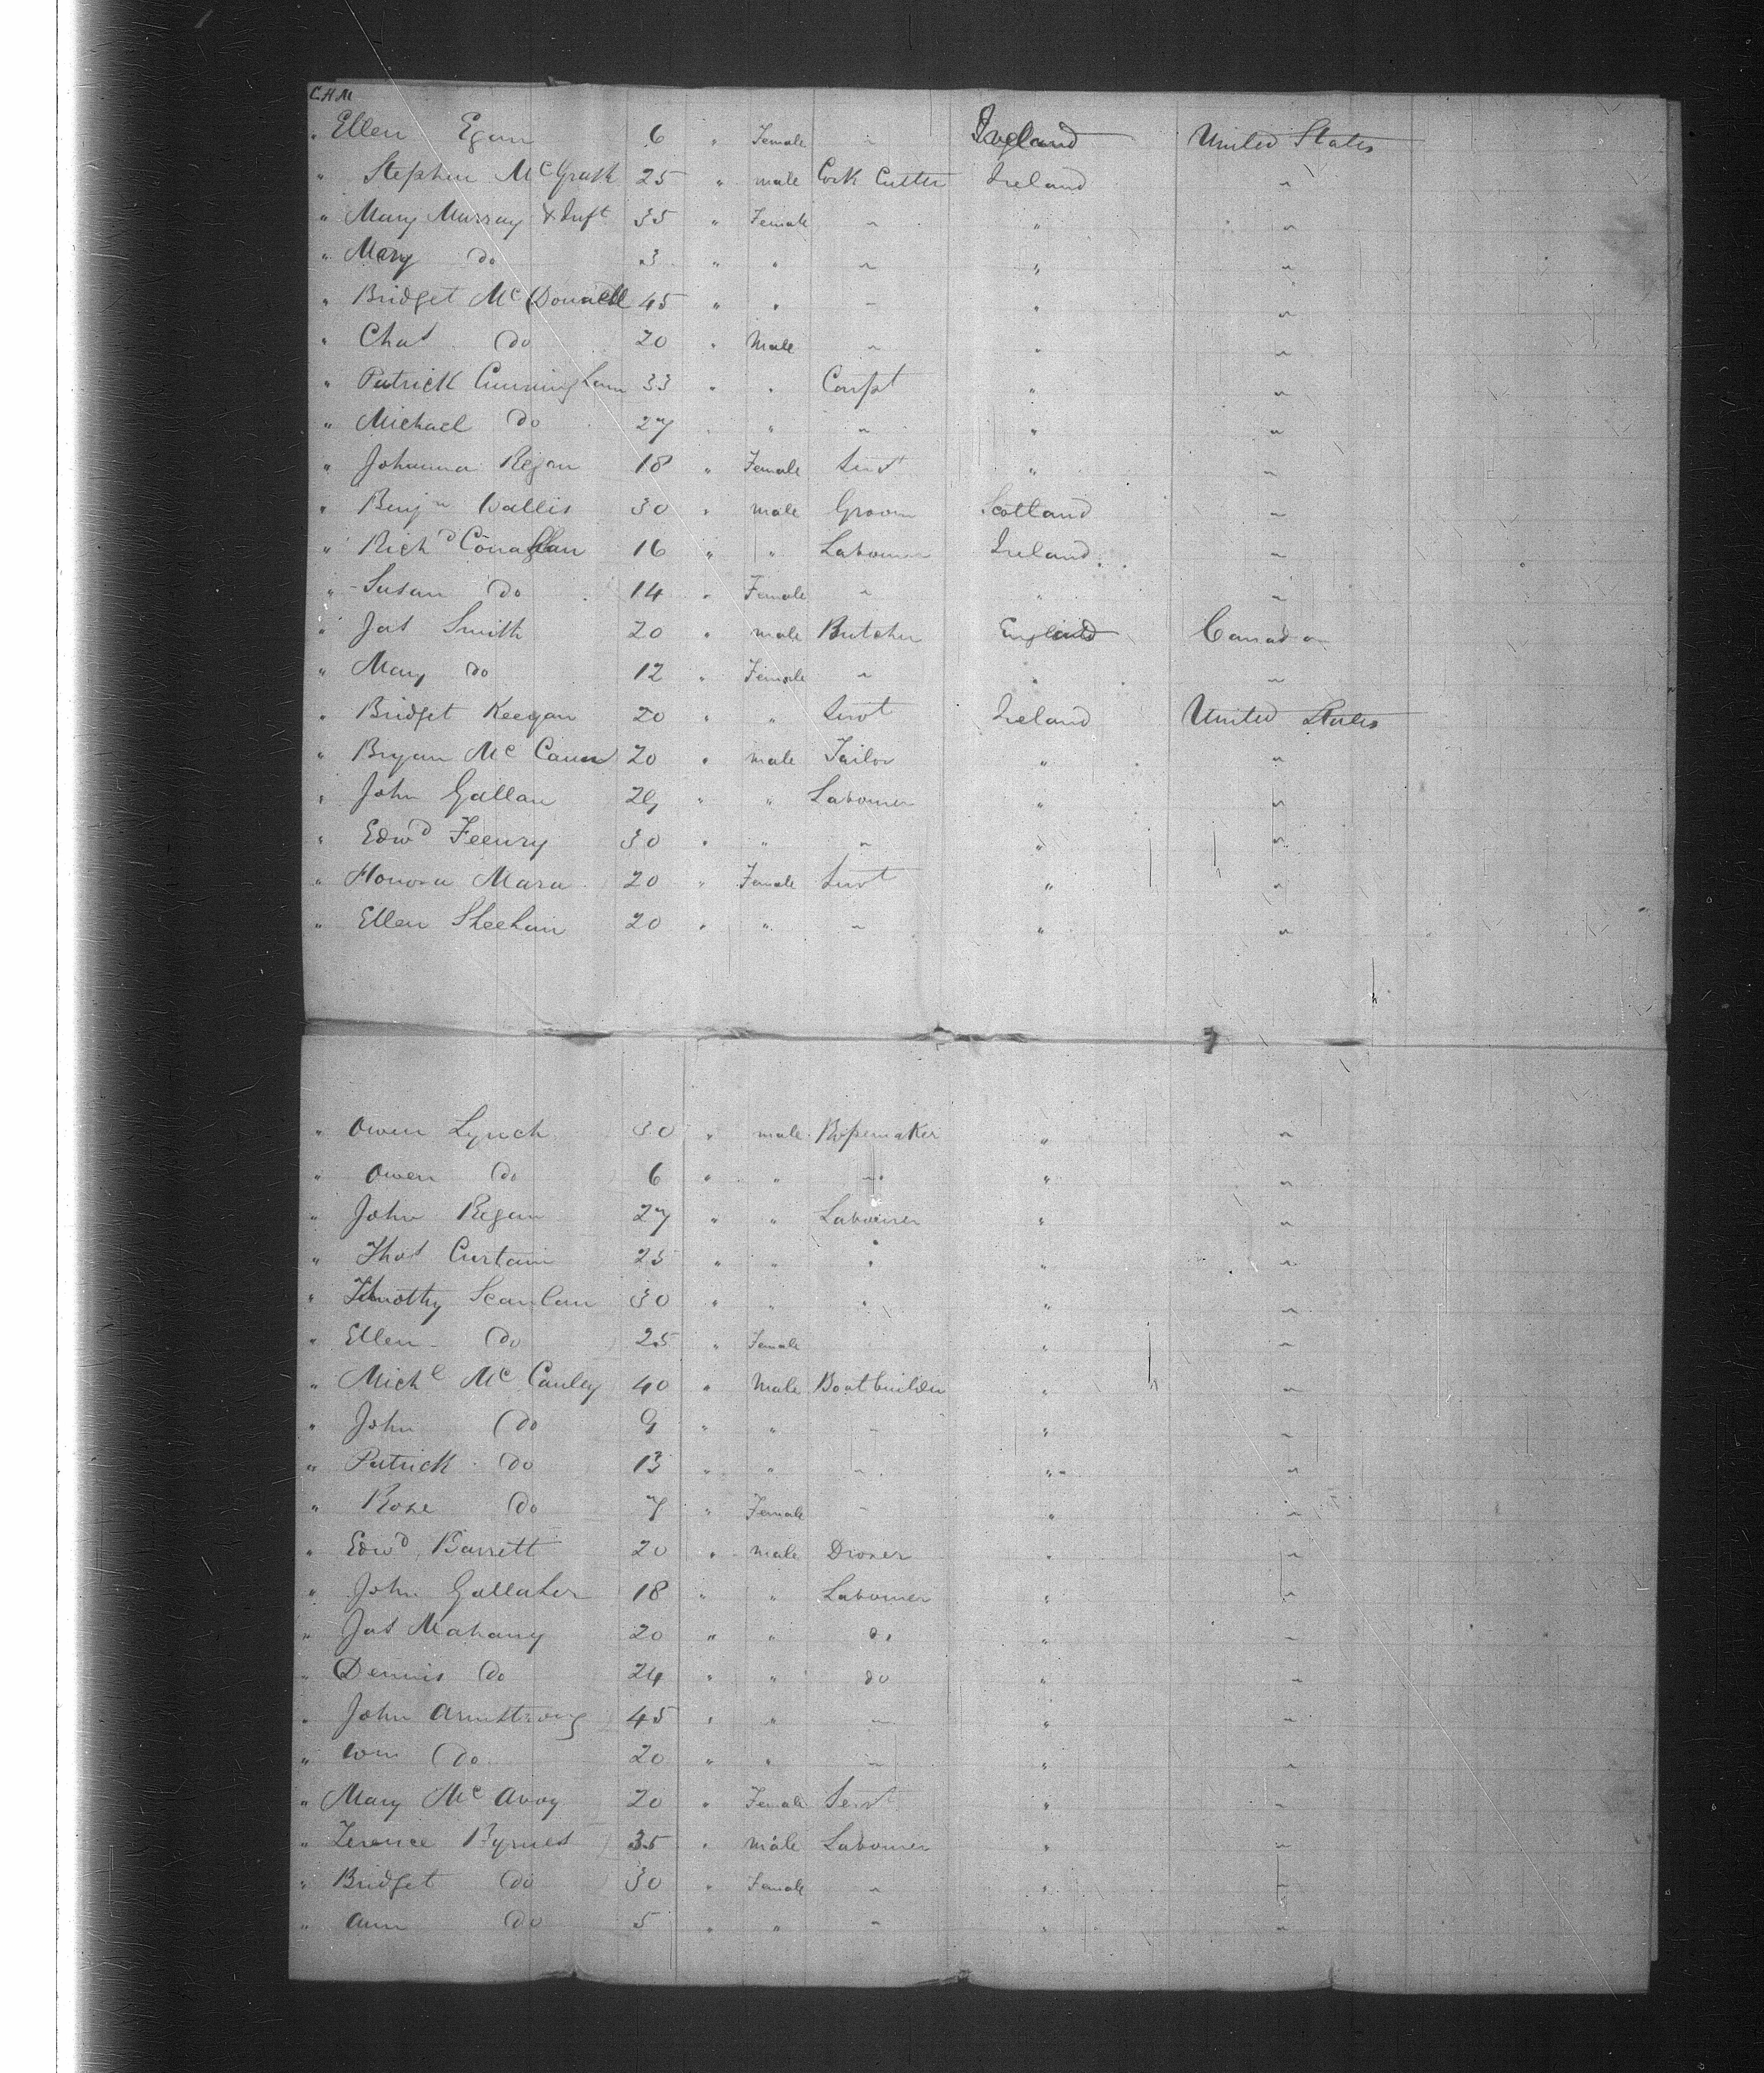 C.H.M
" Ellen Egan 6 " Female " Ireland United States
" Stephen McGrath 25 " male Cork Cutter Ireland "
" Mary Murray & Inft 35 " Female " " "
" Mary Do 3 " " " " "
" Bridget McDonnell 45 " " " " "
" Chas Do 20 " Male " " "
" Patrick Cunningham 33 " " Carpt " "
" Michael Do 27 " " " " "
" Johanna Regan 18 " Female Servt " "
" Benjn Wallis 30 " male Groom Scotland "
" Richd 16 " " Labourer Ireland "
" Susan Do 14 " Female " " "
" Jas Smith 20 " male Butcher England Canada
" Mary Do 12 " Female " " "
" Bridget Keegan 20 " " Servt Ireland United States
" Bryan McCann 20 " male Tailor " "
" John Gallan " " Labourer " "
" Edwd Feenry 30 " " " " "
" Honora Mara 20 " Female Servt " "
" Ellen Sheehan 20 " " " " "
" Owen Lynch 30 " male Ropemaker " "
" Owen Do 6 " " " " "
" John Regan 27 " " Labourer " "
" Thos Curtain 25 " " " " "
" Timothy Scanlan 30 " " " " "
" Ellen Do 25 " Female " "
" Michl McCauley 40 " Male Boatbuilder " "
" John Do 9 " " " " "
" Patrick Do 13 " " " " "
" Rose Do 7 " Female " " "
" Edwd Barrett 20 " male Drover " "
" John Gallaher 18 " " Labourer " "
" Jas Mahany 20 " " do " "
" Dennis Do 24 " " do " "
" John Armstrong 45 " " " " "
" Wm Do 20 " " " " "
" Mary McAvoy 20 " Female Servt " "
" Terence Byrnes 35 " male Labourer " "
" Bridget Do 30 " Female " " "
" Ann Do 5 " " " " "